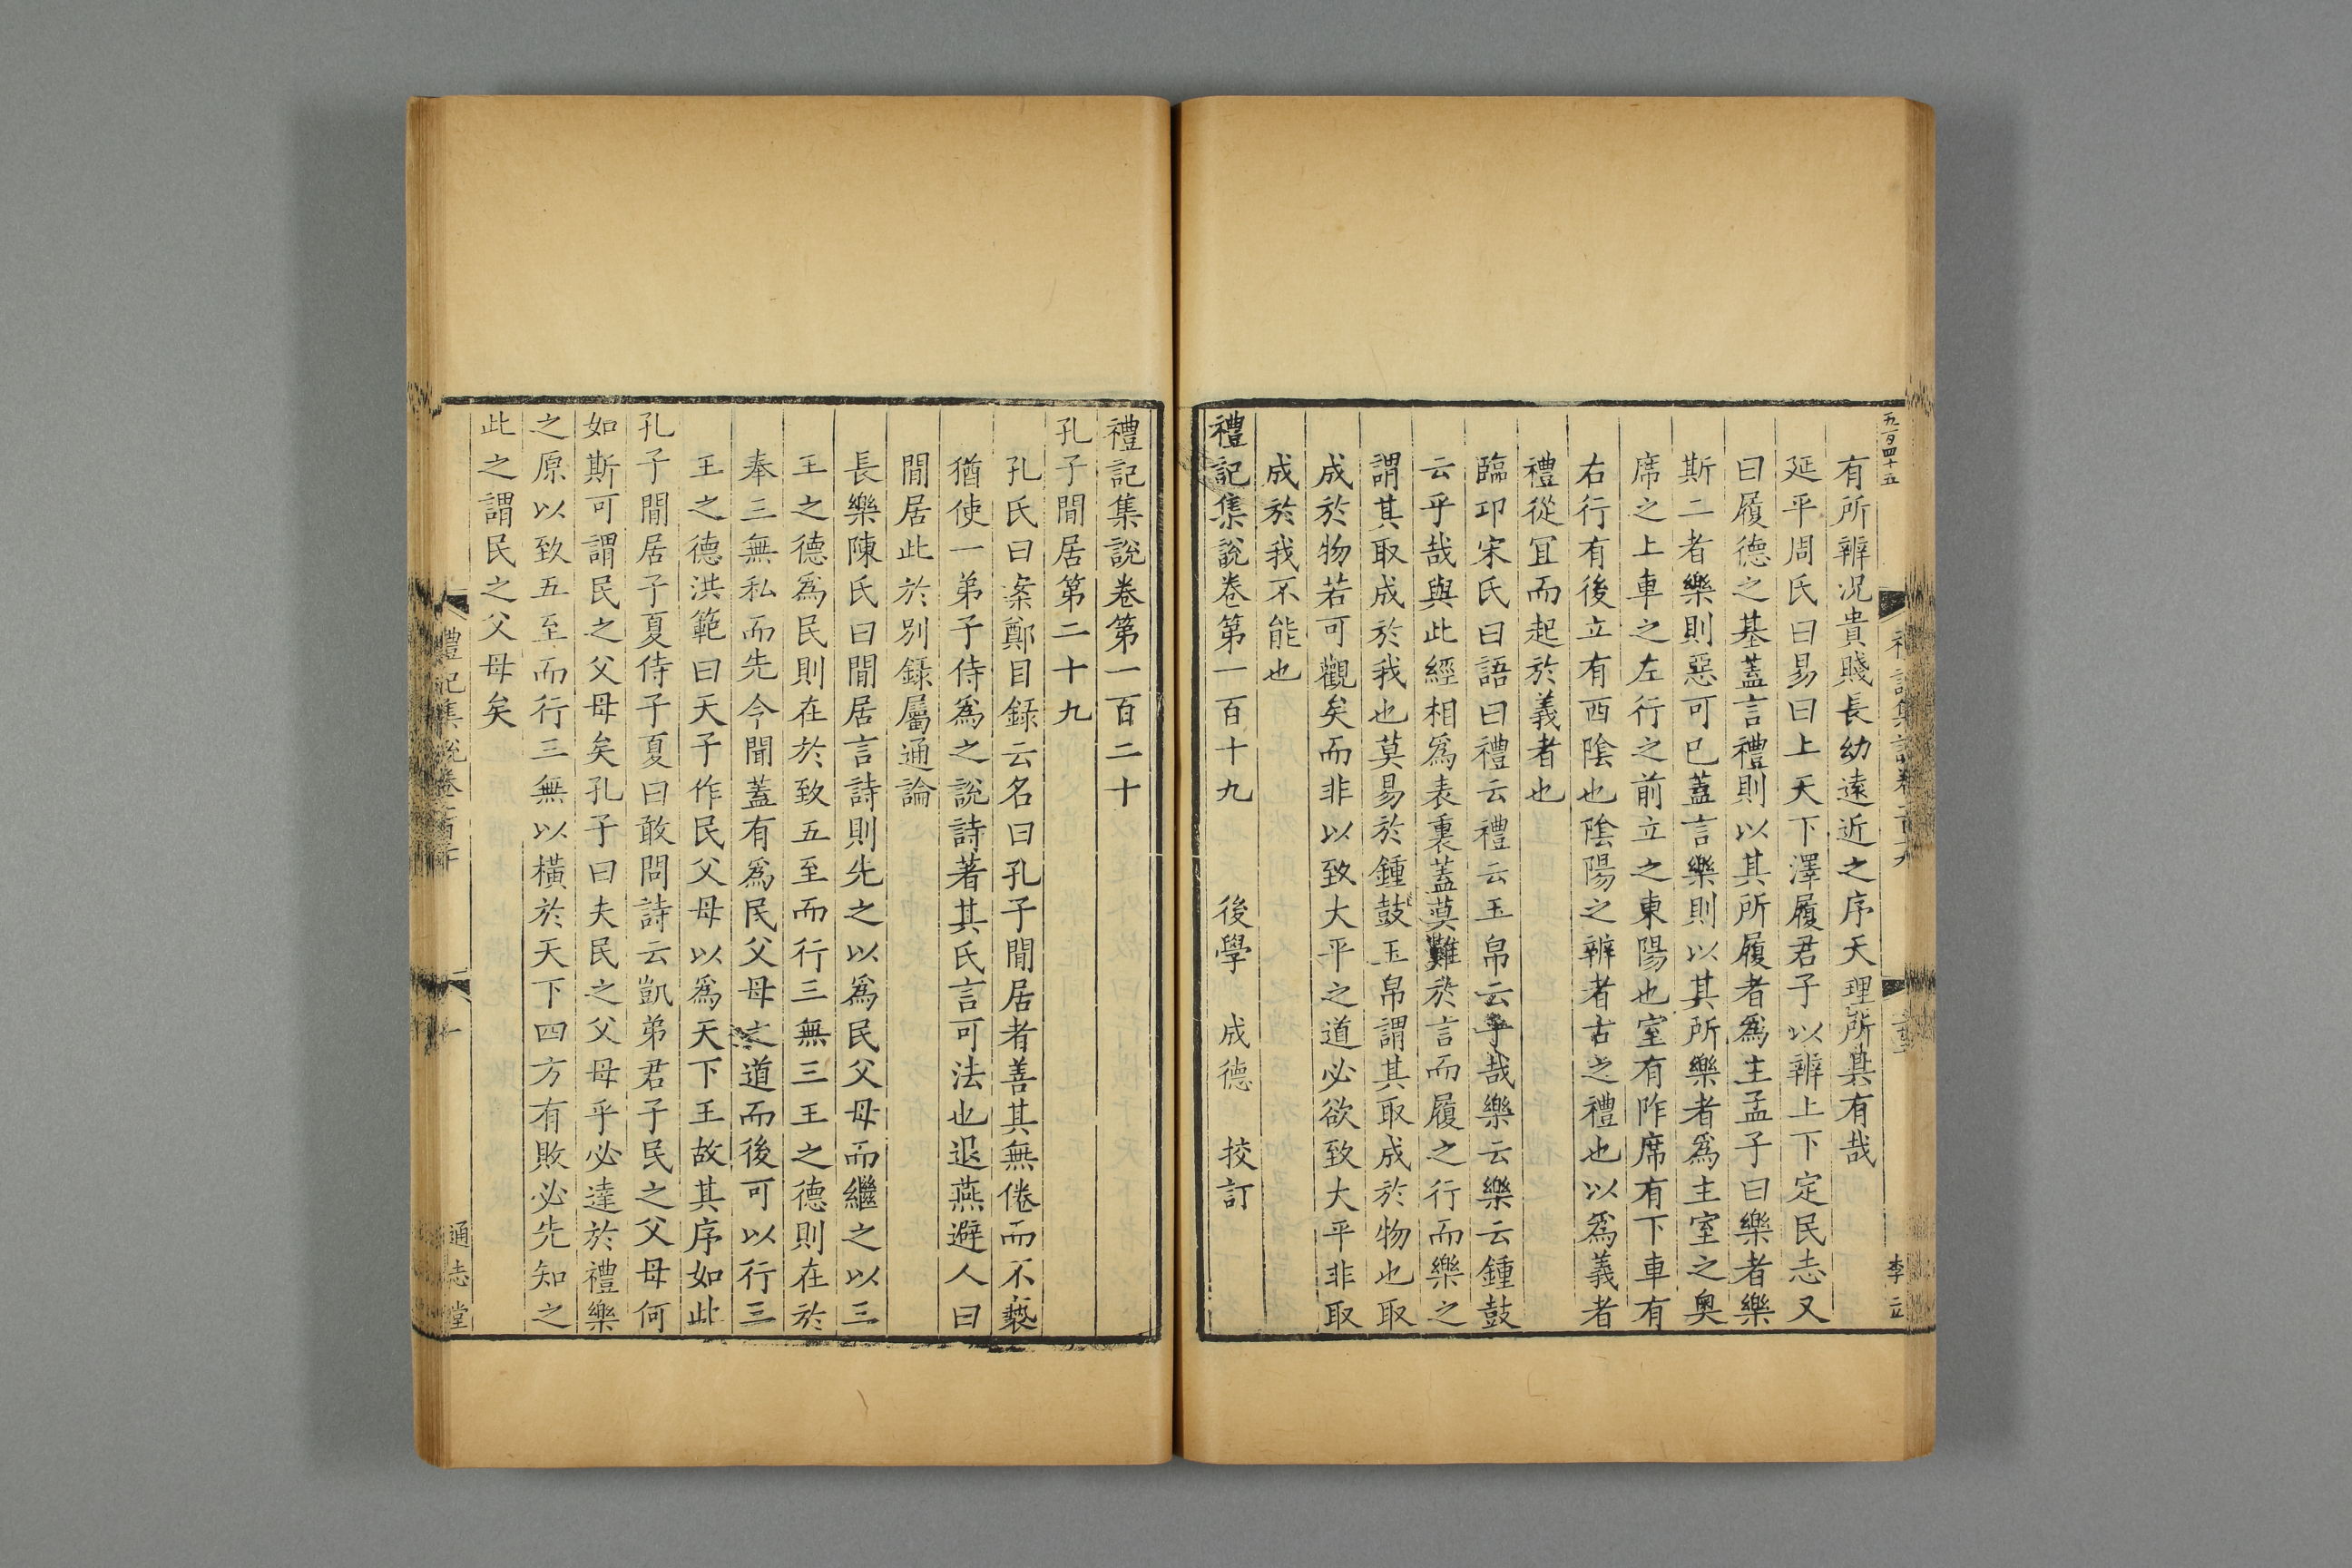 五百四十五
有所辨况貴賤長幼遠近之序天理所其有哉
延平周氏曰易曰上天下澤履君子以辨上下定民志又
曰履德之基蓋言禮則以其所履者爲主孟子曰樂者樂
斯二者樂則惡可已蓋言樂則以其所樂者爲主室之奥
席之上車之左行之前立之東陽也室有阼席有下車有
右行有後立有西陰也陰陽之辨者古之禮也以爲義者
禮從冝而起於義者也
臨卭宋氏曰語曰禮云禮云玉帛云乎哉樂云樂云鍾鼓
云乎哉與此經相爲表裏蓋莫難於言而履之行而樂之
謂其取成於我也莫易於鍾鼓玉帛謂其取成於物也取
成於物若可觀矣而非以致大平之道必欲致大平非取
成於我不能也
禮記集說卷第一百十九 後學 成德 挍訂
李立
禮記集說卷第一百二十
孔子閒居第二十九
孔氏曰案鄭目録云名曰孔子閒居者善其無倦而不䙝
猶使一弟子侍爲之說詩著其氏言可法也退燕避人曰
閒居此於别錄屬通論
長樂陳氏曰閒居言詩則先之以爲民父母而繼之以三
王之德爲民則在於致五至而行三無三王之德則在於
奉三無私而先今聞蓋有爲民父母之道而後可以行三
王之德洪範曰天子作民父母以爲天下王故其序如此
孔子閒居子夏侍子夏曰敢問詩云凱弟君子民之父母何
如斯可謂民之父母矣孔子曰夫民之父母乎必達於禮樂
之原以致五至而行三無以橫於天下四方有敗必先知之
此之謂民之父母矣
禮記集說卷一百二十
通志堂